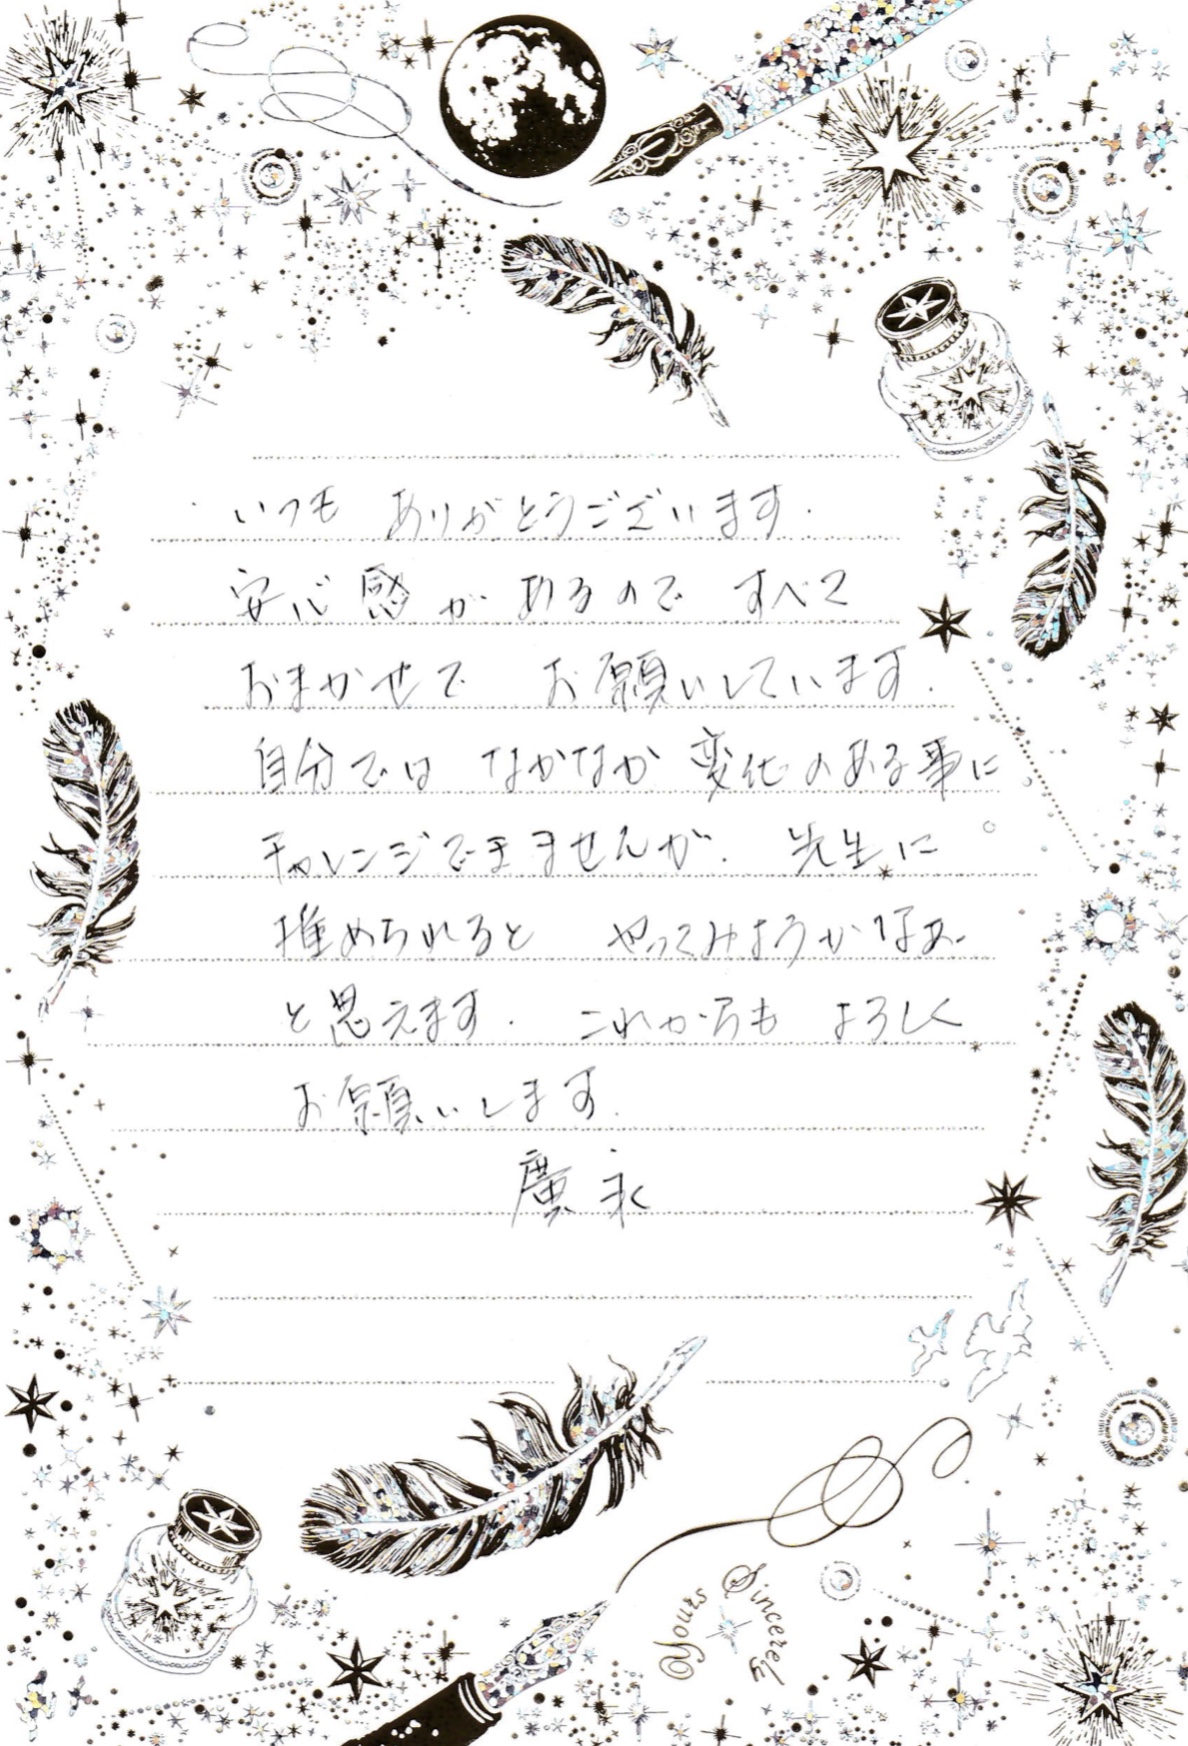 いつも ありがとうございます.
安心感があるので すべて
おまかせで お願いしています.
自分では なかなか変化のある事に
チャレンジできませんが. 先生に
推められると やってみようかなぁ.
と思えます. これからも よろしく
お願いします.
廣永
Yours Sincerely